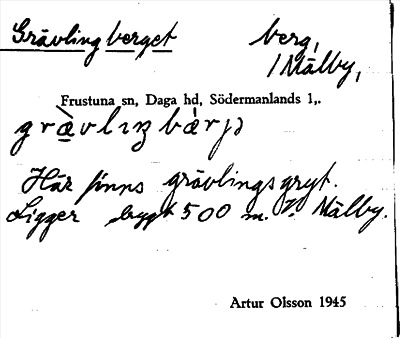 Grävlingberget berg,
/ Mälby,
Frustuna sn, Daga hd, Södermanlands l,.
Här finns grävlingsgryt.
Ligger 500 m. Mälby.
Artur Olsson 1945